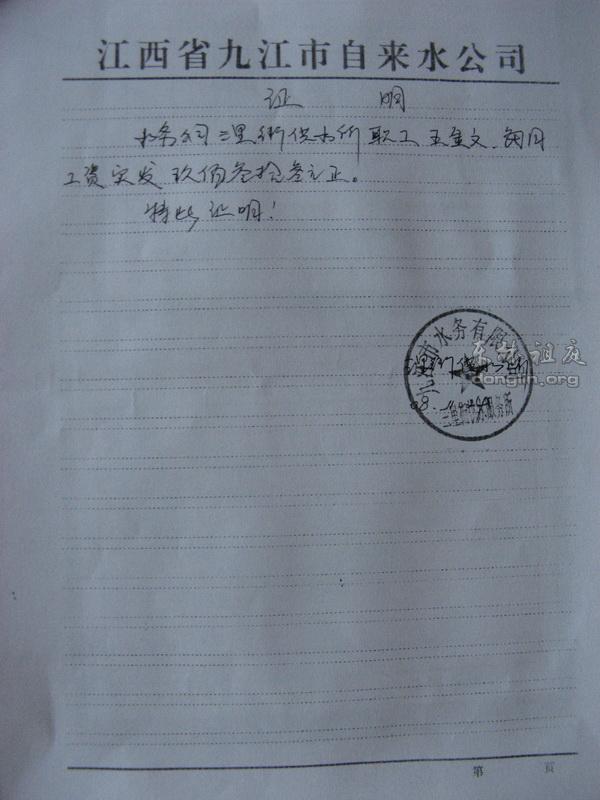 江西省九江市自来水公司
证 明
水务公司三里街供水所职工王金文、每月
工资实发玖佰叁拾叁元正。
特此证明!
九江市水务有限
三里街供水所
东林祖庭
donglin.org
08.
第 页